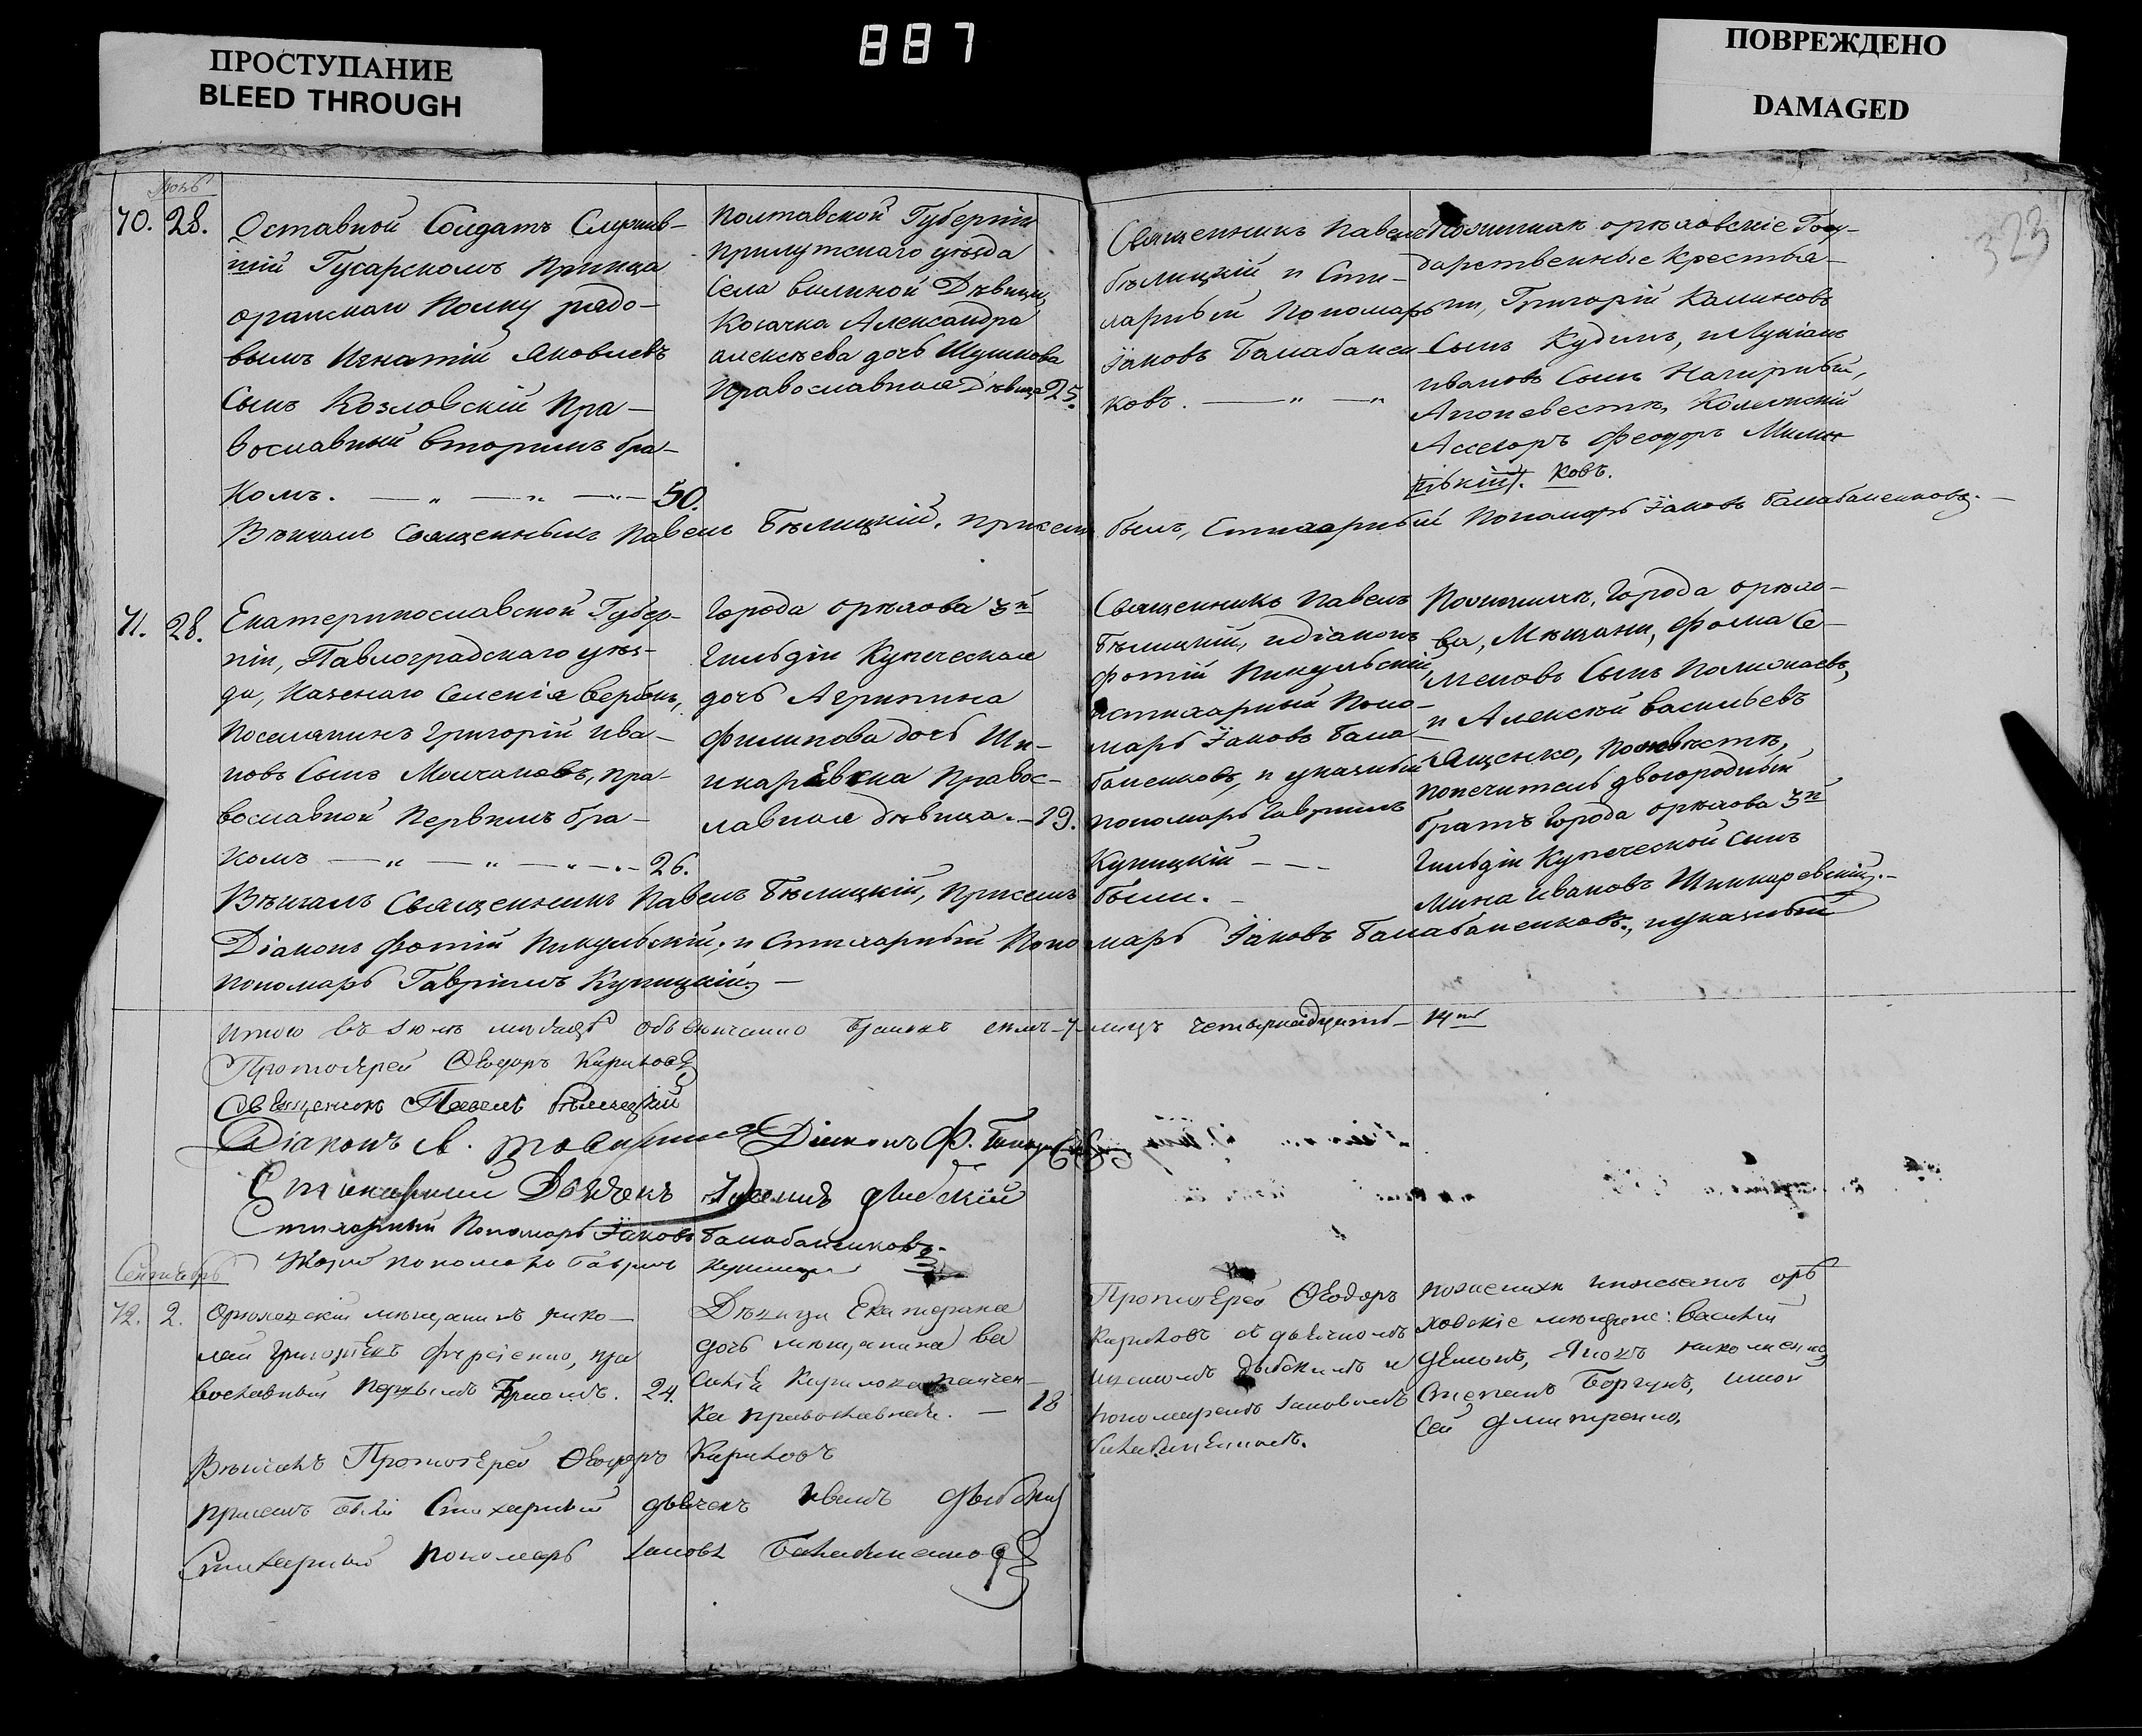 887
ПРОСТУПАНИЕ
BLEED THROUGH
ПОВРЕЖДЕНО
DAMAGED
323
70. 28.
Оставной Солдатъ Служив-
шій Гусарскомъ Принца
оранскаго Полку рядо-
вымъ Игнатій Яковлевъ
Сынъ Козловскій Пра-
вославный вторымъ бра-
комъ. — „ — „ — 50.
Полтавской Губерніи
Прилуцкаго уѣзда
Села Дѣвицы,
Козачка Александра
алексѣева дочь Шушкова
Православная Дѣвица 25.
Священникъ Павелъ
бѣлицкій и Сти-
харный Пономарь
Іаковъ Балабанен-
ковъ. — „ — „
орѣховскіе Госу-
дарственные Крестья-
ни, Григорій Калиновъ
Сынъ Кудинъ, и Лукіанъ
ивановъ Сынъ Нагирный,
Апоневестѣ, Колежскій
Ассесоръ Феодоръ Милю-
ковъ.
Вѣнчалъ Священникъ Павелъ Бѣлицкій, присемъ былъ, Стихарный Пономарь Іаковъ Балабаненковъ. —
71. 28.
Екатеринославской Губер-
ніи, Павлоградскаго уѣз-
да, Казенаго Селенія Вербокъ,
Поселянинъ Григорій ива-
новъ Сынъ Молчановъ, пра-
вославной Первымъ бра-
комъ — „ — „ — „ — 26.
Города орѣхова 3й
Гильдіи Купеческая
дочь Агрипина
Филипова дочь Ши-
нкарЕвска Правос-
лавная дѣвица. — 19.
Священникъ Павелъ
Бѣлицкій, идіаконъ
Фотій Пикульскій,
истихарный Поно-
марь Іаковъ Бала-
баненковъ, и указный
пономарь Гавріилъ
Купицкій — —
Города орѣхо-
ва, Мѣщани, Фома Се-
меновъ Сынъ
и Алексѣй васильевъ
Ященко, Поневѣстѣ,
попечитель двоюродный
братъ Города орѣхова 3й
Гильдіи Купеческой Сынъ
Мина ивановъ Шинкаревскій. —
Вѣнчалъ Священникъ Павелъ Бѣлицкій, Присемъ были. —
Діаконъ Фотій Пикульскій, и Стихарный Пономарь Іаковъ Балабаненковъ., иуказный
пономарь Гавріилъ Купицкій. —
Итого въ Іюлѣ мѣсяцѣ обвѣнчанно браковъ семь — 7 — лицъ четырнадцать — 14
Протоіерей Ѳеодоръ Кириловъ
Священикъ Павелъ Бѣлицкій
Діаконъ
Діаконъ Ф.
Стихарный Дьячекъ
Стихарный Пономарь Іаковъ Балабаненковъ.
пономарь Гавріилъ
Сентябрь
72. 2.
мѣщанинъ нико-
лай Григорьевъ пра
вославный первымъ бракомъ. 24.
Дѣвица Екатерина
дочь мѣщанина ва
силія
ка православная. — 18
Протоіерей Ѳеодоръ
Кириловъ съ дьячкомъ
и
пономаремъ Іаковомъ
орѣ
ховскіе мѣщане: василій
Степанъ
Дмитренко,
Вѣнчалъ Протоіерей Ѳеодоръ Кириловъ
присемъ были Стихарный дьячекъ иванъ
Стихарный пономарь Іаковъ